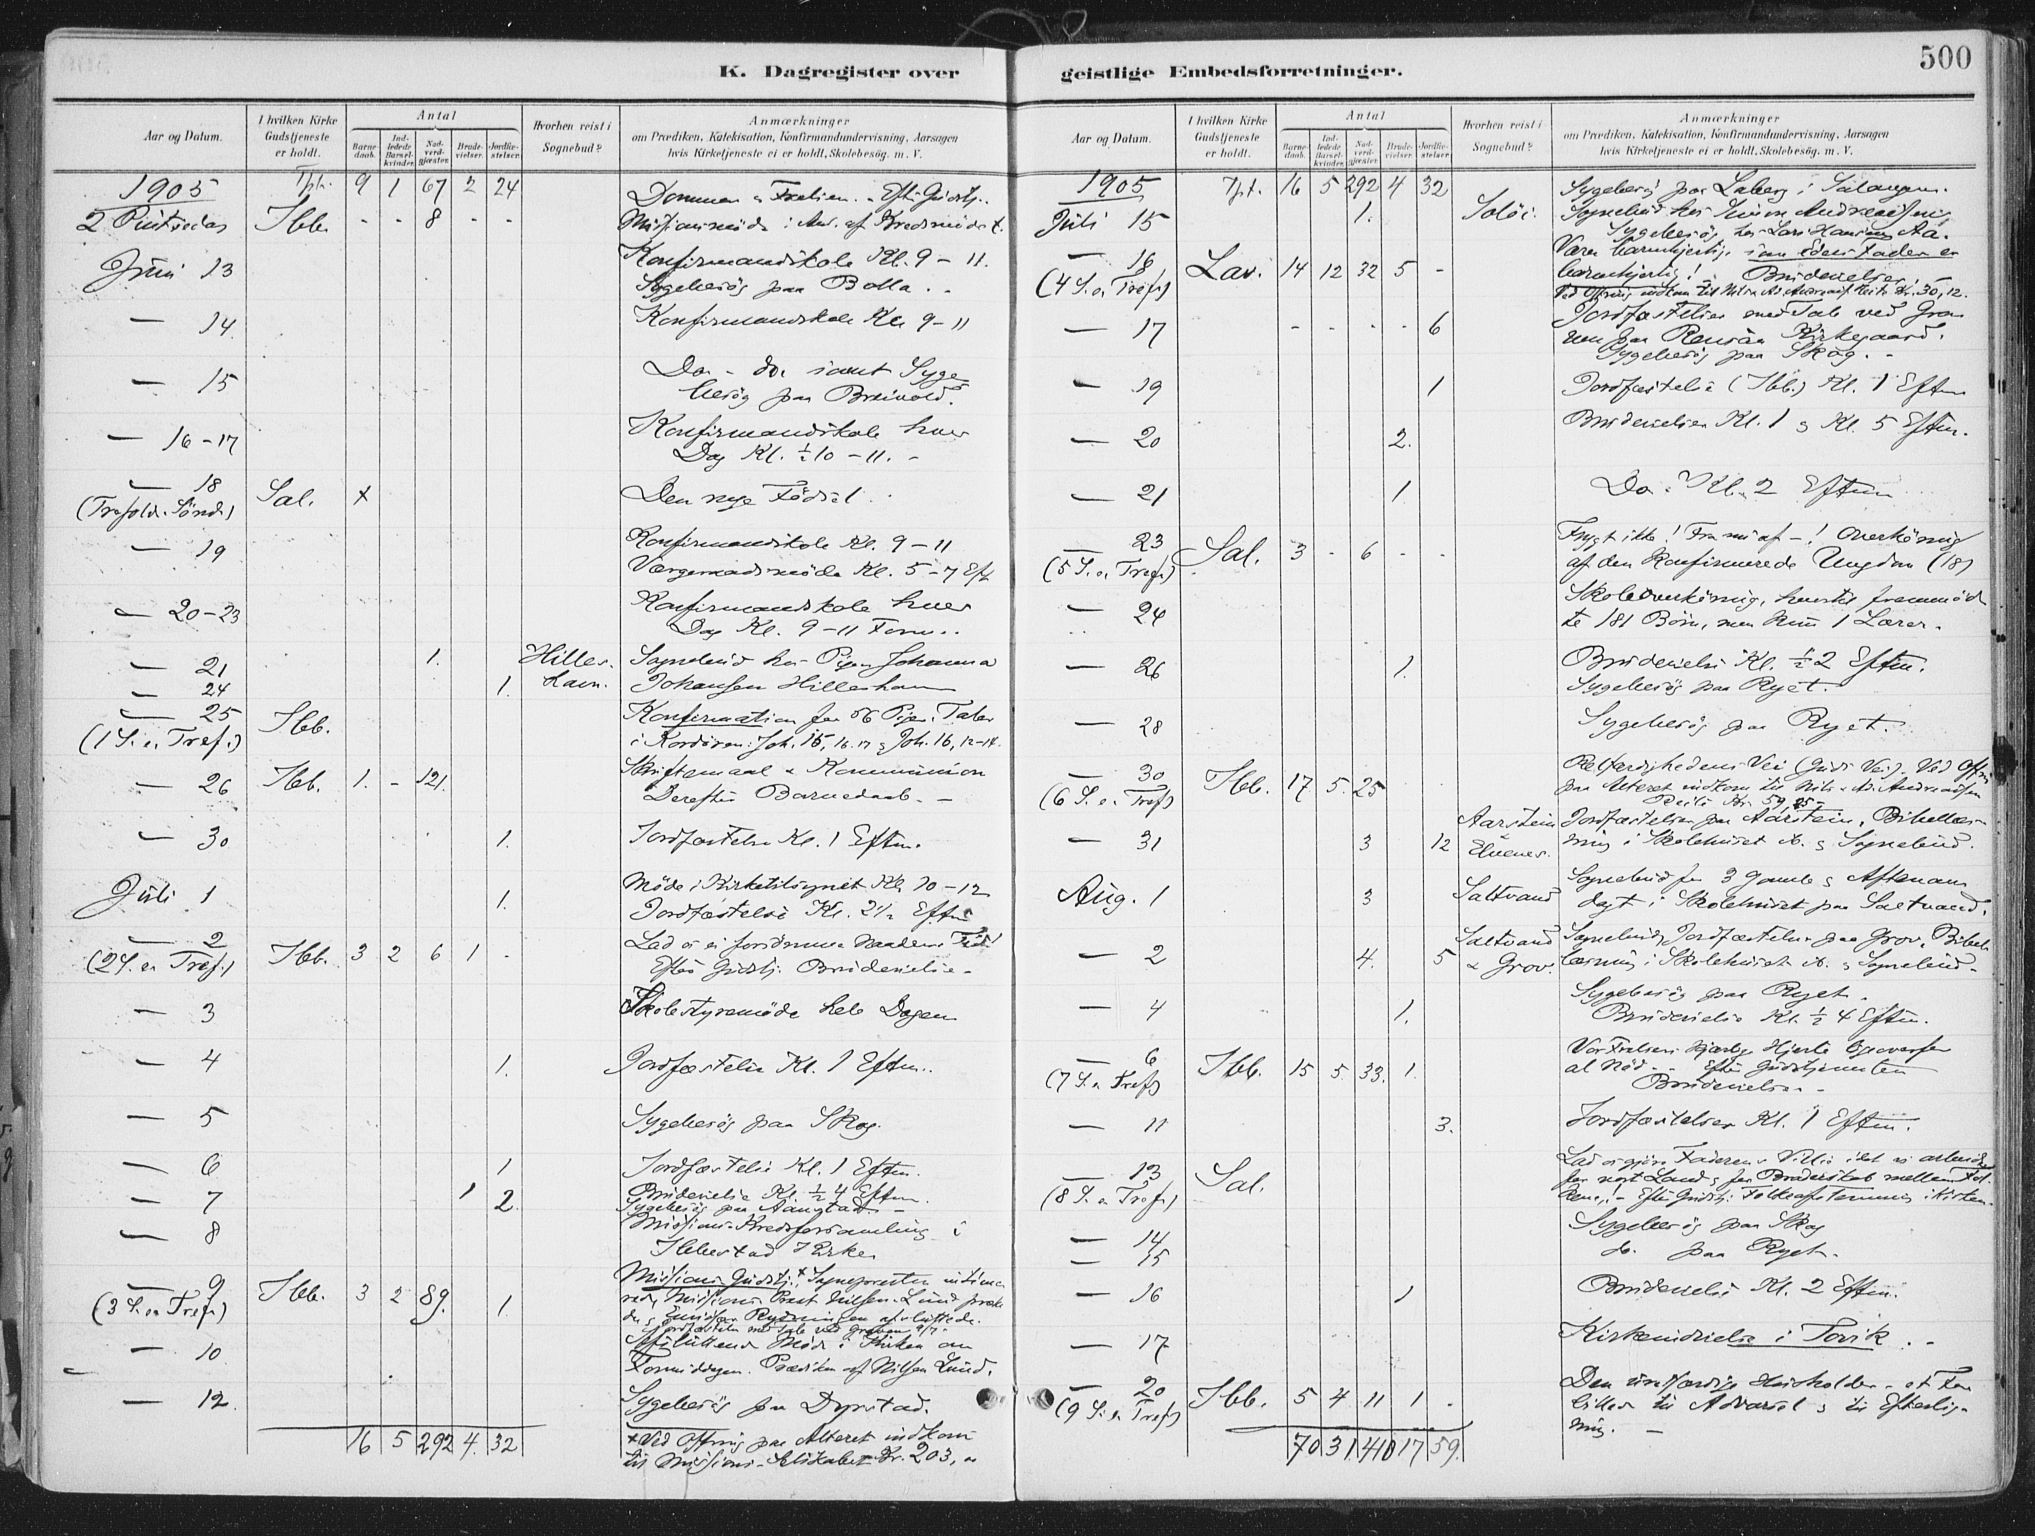 500
K. Dagregister over geistlige Embedsforretninger.
Aar og Datum.
I hvilken Kirke Gudstjeneste er holdt.
Antal
Barnedaab.
Indledede Barselkvinder.
Nadverdgjæster.
Brudevielser.
Jordfæstelser.
Hvorhen reist i Sognebud?
Anmærkninger
om Prædiken, Katekisation, Konfirmandundervisning, Aarsagen
hvis Kirketjeneste ei er holdt, Skolebesøg. m. V.
1905 Tpt. 9 1 67 2 24 Dommen Frelsen. Efter Gudstj.
2 Pintsedag Ibb. - - 8 - - Missionsmøde i Anl. af Kredsmøde
Juni 13 Konfirmandskole Kl. 9 - 11.
Sygebesøg paa Bolla.
— 14. Konfirmandskole Kl. 9-11
— 15 Do - do samt Syge
besøg paa Breivold.
— 16-17 Konfirmandskole hver
Dag Kl. ½10 - 11. -
— 18 (Trefold. Sønd.) Sal. + Den nye Fødsel.
— 19 Konfirmandskole Kl. 9-11
Værgeraadsmøde Kl. 5-7 Eft.
— 20-23 Konfirmandskole hver
Dag Kl. 9-11 Form.
— 21 1. Hilles- Sognebud hos Pigen Johanna
— 24 1. havn. Johansen Hilleshavn
— 25 (1 S. e. Tref.) Ibb. Konfirmation for 56 Piger. Taler
i Kordøren: Joh. 15, 16.17 & Joh. 16, 12-14.
— 26 Ibb. 1. - 121. Skriftemaal & Kommunion
Derefter Barnedaab. -
— 30 1. Jordfæstelse Kl. 1 Eftm.
Juli 1 1. Møde i Kirketilsynet Kl. 10-12
Jordfæstelse Kl. 2½ Eftm
— 2 (2 S. e. Tref.) Ibb. 3 2 6 1 - Lad os ei forsømme Naadens Tid!
Efter Gudstj. Brudevielse.
— 3 Skolestyremøde hele Dagen
— 4 1. Jordfæstelse Kl. 1 Eftm.
— 5 Sygebesøg paa Skog.
— 6 1 Jordfæstelse Kl. 1 Eftm.
— 7 1 2 Brudevielse Kl. ½4 Eftm.
Sygebesøg paa Aanstad
— 8 Missions-Kredsforsamling i
Ibbestad Kirke
— 9 (3 S. e. Tref.) Ibb. 3 2 89. 1 Missions Gudstj. + Sognepresten
Missions Prest Nilsen-Lund præke
de,
Jordfæstelse med tale ved graven
— 10 Afsluttende Møde i Kirken om
Formiddagen. Prædiken af Nilsen Lund.
— 12. Sygebesøg paa Dyrstad.
16 5 292 4. 32
+ Ved Offring paa Alteret indkom
til Missions-Selskabet Kr. 203,
Aar og Datum.
I hvilken Kirke Gudstjeneste er holdt.
Antal
Barnedaab.
Indledede Barselkvinder.
Nadverdgjæster.
Brudevielser.
Jordfæstelser.
Hvorhen reist i Sognebud?
Anmærkninger
om Prædiken, Katekisation, Konfirmandundervisning, Aarsagen
hvis Kirketjeneste ei er holdt, Skolebesøg. m. V.
1905 Tpt. 16 5 292 4 32 Sygebesøg paa Laberg i Salangen.
Juli 15 1. Soløi. Sognebud hos Simon Andreassen
Sygebesøg hos Lars Hansen Aa.
— 16 (4 S. e. Tref.) Lav. 14 12 32 5 - Vær barmhjertig, som Eders Fader er
barmhjertig! - Brudevielser.
Ved Offring indkom til Kr. 30,12.
— 17 - - - - 6 Jordfæstelser med Tale ved Gra
ven paa Rensaa Kirkegaard.
Sygebesøg paa Skog. -
— 19 1 Jordfæstelse (Ibb.) Kl. 1 Eftm
— 20 2. Brudevielser Kl. 1 & Kl. 5 Eftm.
— 21 1. Do. Kl. 2 Eftm
— 23 (5 S. e. Tref.) Sal. 3 - 6 - - Frygt ikke! Fra nu af -! Overhøring
af den Konfirmerede Ungdom (18)
— 24 Skoleoverhøring, hvortil fremmød
te 181 Børn, men kun 1 Lærer.
— 26 1. Brudevielse Kl. ½2 Eftm.
Sygebesøg paa Ryet.
— 28 Sygebesøg paa Ryet.
— 30 (6 S. e. Tref.) Ibb. 17 5. 25 Retfærdighedens Vei (Guds Vei). Ved Offring
paa Alteret indkom til
— 31 3 12 Aarstein Elvenes. Jordfæstelser paa Aarstein, Bibellæs-
ning i Skolehuset & Sognebud.
Aug. 1 3 Saltvand Sognebud for 3 gamle & Aftenan
dagt i Skolehuset paa Saltvand.
— 2 4. 5 Saltvand & Grov. Sognebud, Jordfæstelser paa Grov, Bibel
læsning i Skolehuset & Sognebud.
— 4 1. Sygebesøg paa Ryet.
Brudevielse Kl. ½ 4 Eftm.
— 6 (7 S. e. Tref.) Ibb. 15 5. 33. 1. Vor Frelsers kjærlige Hjerte
al Nød. - Efter Gudstjenesten
Brudevielse -
— 11 3. Jordfæstelser Kl. 1 Eftm.
— 13 (8 S. e. Tref.) Sal. Lad os gjøre Faderens Villie idet vi arbeide
for vort Land & for Broderskab mellem Fol
kene. - Efter Gudstj. Folkeafstemning i Kirken.
— 14 Sygebesøg paa Skog
— 15 do. paa Ryet.
— 16 1 Brudevielse Kl. 2 Eftm.
— 17 Kirkeindvielse i Tovik. -
— 20 (9 S. e. Tref.) Ibb. 5 4 11 1 - Den uretfærdige Husholder - et Fore
billede til Advarsel & til Efterlig-
ning. -
70 31 410 17 59.